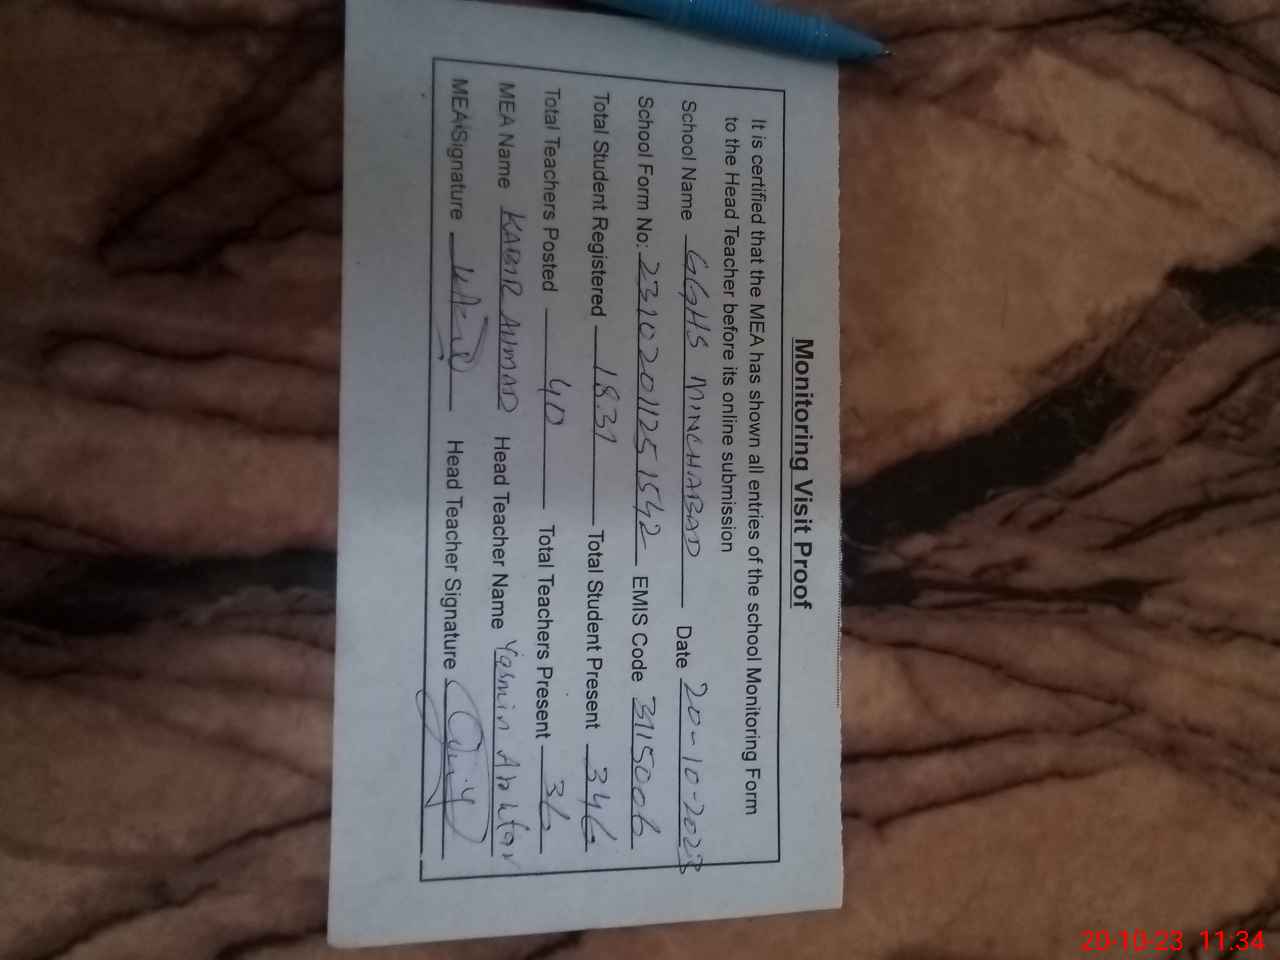 Monitoring Visit Proof
It is certified that the MEA has shown all entries of the school Monitoring Form
to the Head Teacher before its online submission
School Name GGHS MINCHABAD Date 20-10-2023
School Form No: 2310201125 1542 EMIS Code 3115006
Total Student Registered 1831 Total Student Present 346
Total Teachers Posted 40 Total Teachers Present 36
MEA Name KABIR AHMAD Head Teacher Name Yasmin Akhtar
MEA Signature Head Teacher Signature
20-10-23 11:34